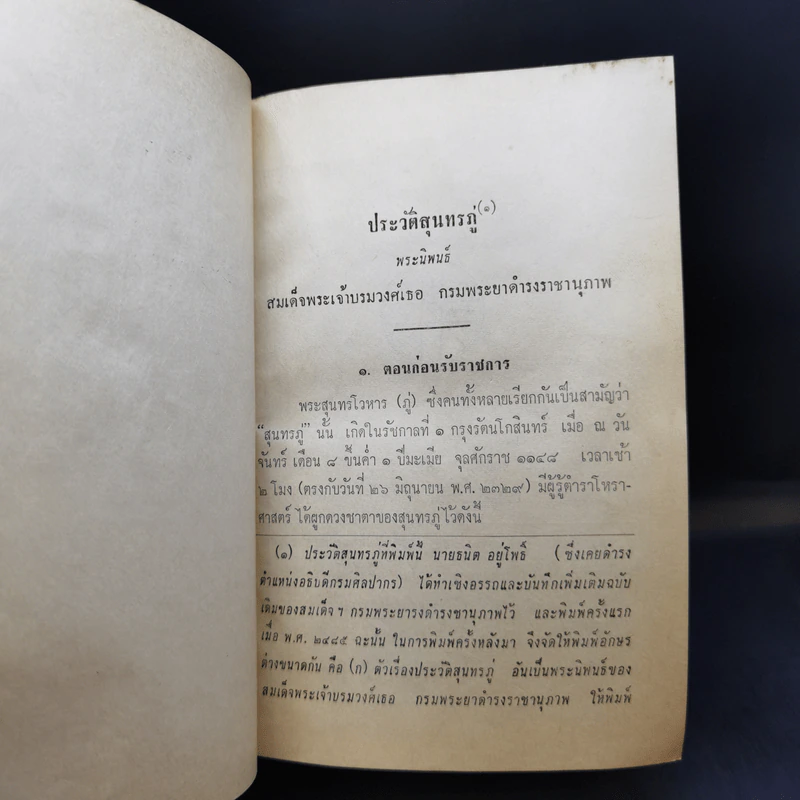 ประวัติสุนทรภู่(๑)
พระนิพนธ์
สมเด็จพระเจ้าบรมวงศ์เธอ กรมพระยาดำรงราชานุภาพ
๑. ตอนก่อนรับราชการ
พระสุนทรโวหาร (ภู่) ซึ่งคนทั้งหลายเรียกกันเป็นสามัญว่า
“สุนทรภู่” นั้น เกิดในรัชกาลที่ ๑ กรุงรัตนโกสินทร์ เมื่อ ณ วัน
จันทร์ เดือน ๘ ขึ้นค่ำ ๑ ปีมะเมีย จุลศักราช ๑๑๔๘ เวลาเช้า
๒ โมง (ตรงกับวันที่ ๒๖ มิถุนายน พ.ศ. ๒๓๒๙) มีผู้รู้ตำราโหรา-
ศาสตร์ ได้ผูกดวงชาตาของสุนทรภู่ไว้ดังนี้
(๑) ประวัติสุนทรภู่ที่พิมพ์นี้ นายธนิต อยู่โพธิ์ (ซึ่งเคยดำรง
ตำแหน่งอธิบดีกรมศิลปากร) ได้ทำเชิงอรรถและบันทึกเพิ่มเติมฉบับ
เดิมของสมเด็จฯ กรมพระยารงดำรงชานุภาพไว้ และพิมพ์ครั้งแรก
เมื่อ พ.ศ. ๒๔๘๕ ฉะนั้น ในการพิมพ์ครั้งหลังมา จึงจัดให้พิมพ์อักษร
ต่างขนาดกัน คือ (ก) ตัวเรื่องประวัติสุนทรภู่ อันเป็นพระนิพนธ์ของ
สมเด็จพระเจ้าบรมวงศ์เธอ กรมพระยาดำรงราชานุภาพ ให้พิมพ์